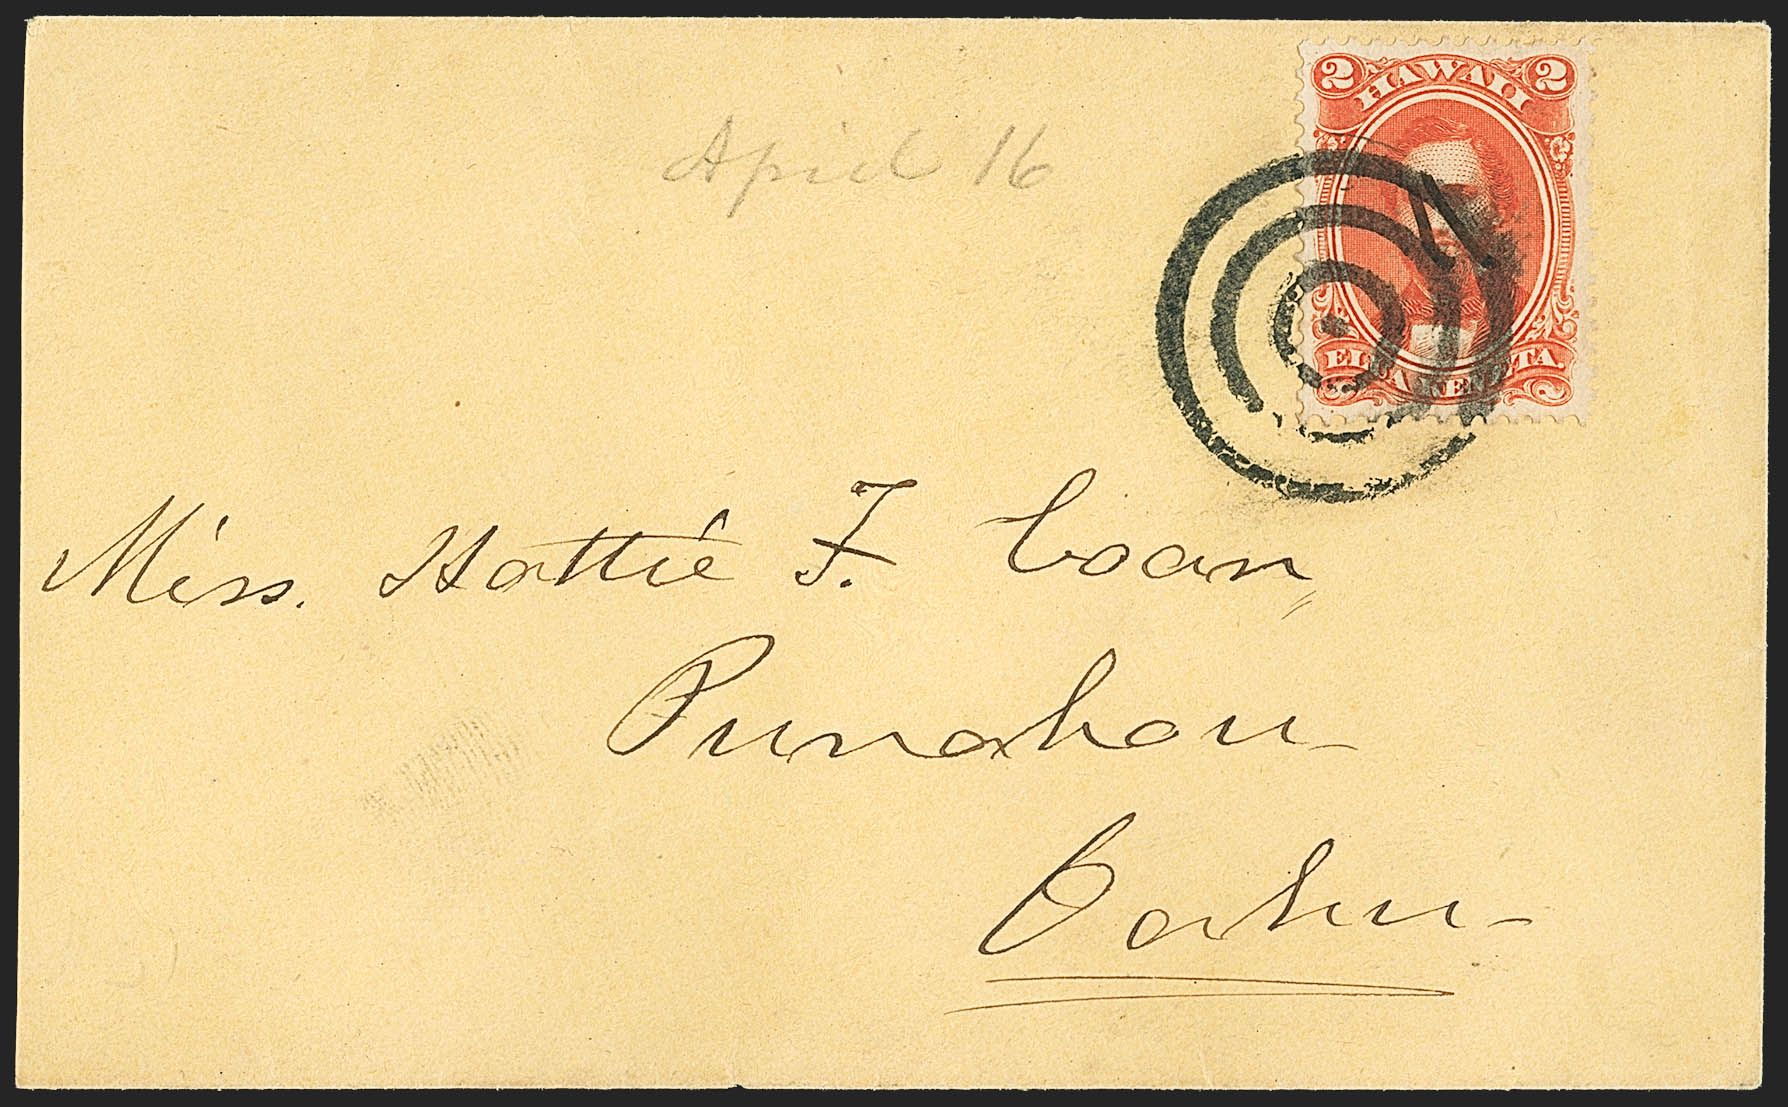 2 HAWAII 2
April 16
ELUA KENETA
Miss. Hattie F. Coan,
Punahou
Oahu